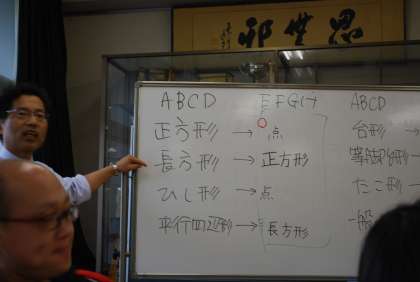 思無邪
ABCD EFGH ABCD
正方形 → 点 台形 →
長方形 → 正方形 等脚台形 →
ひし形 → 点 たこ形 →
平行四辺形 → 長方形 一般